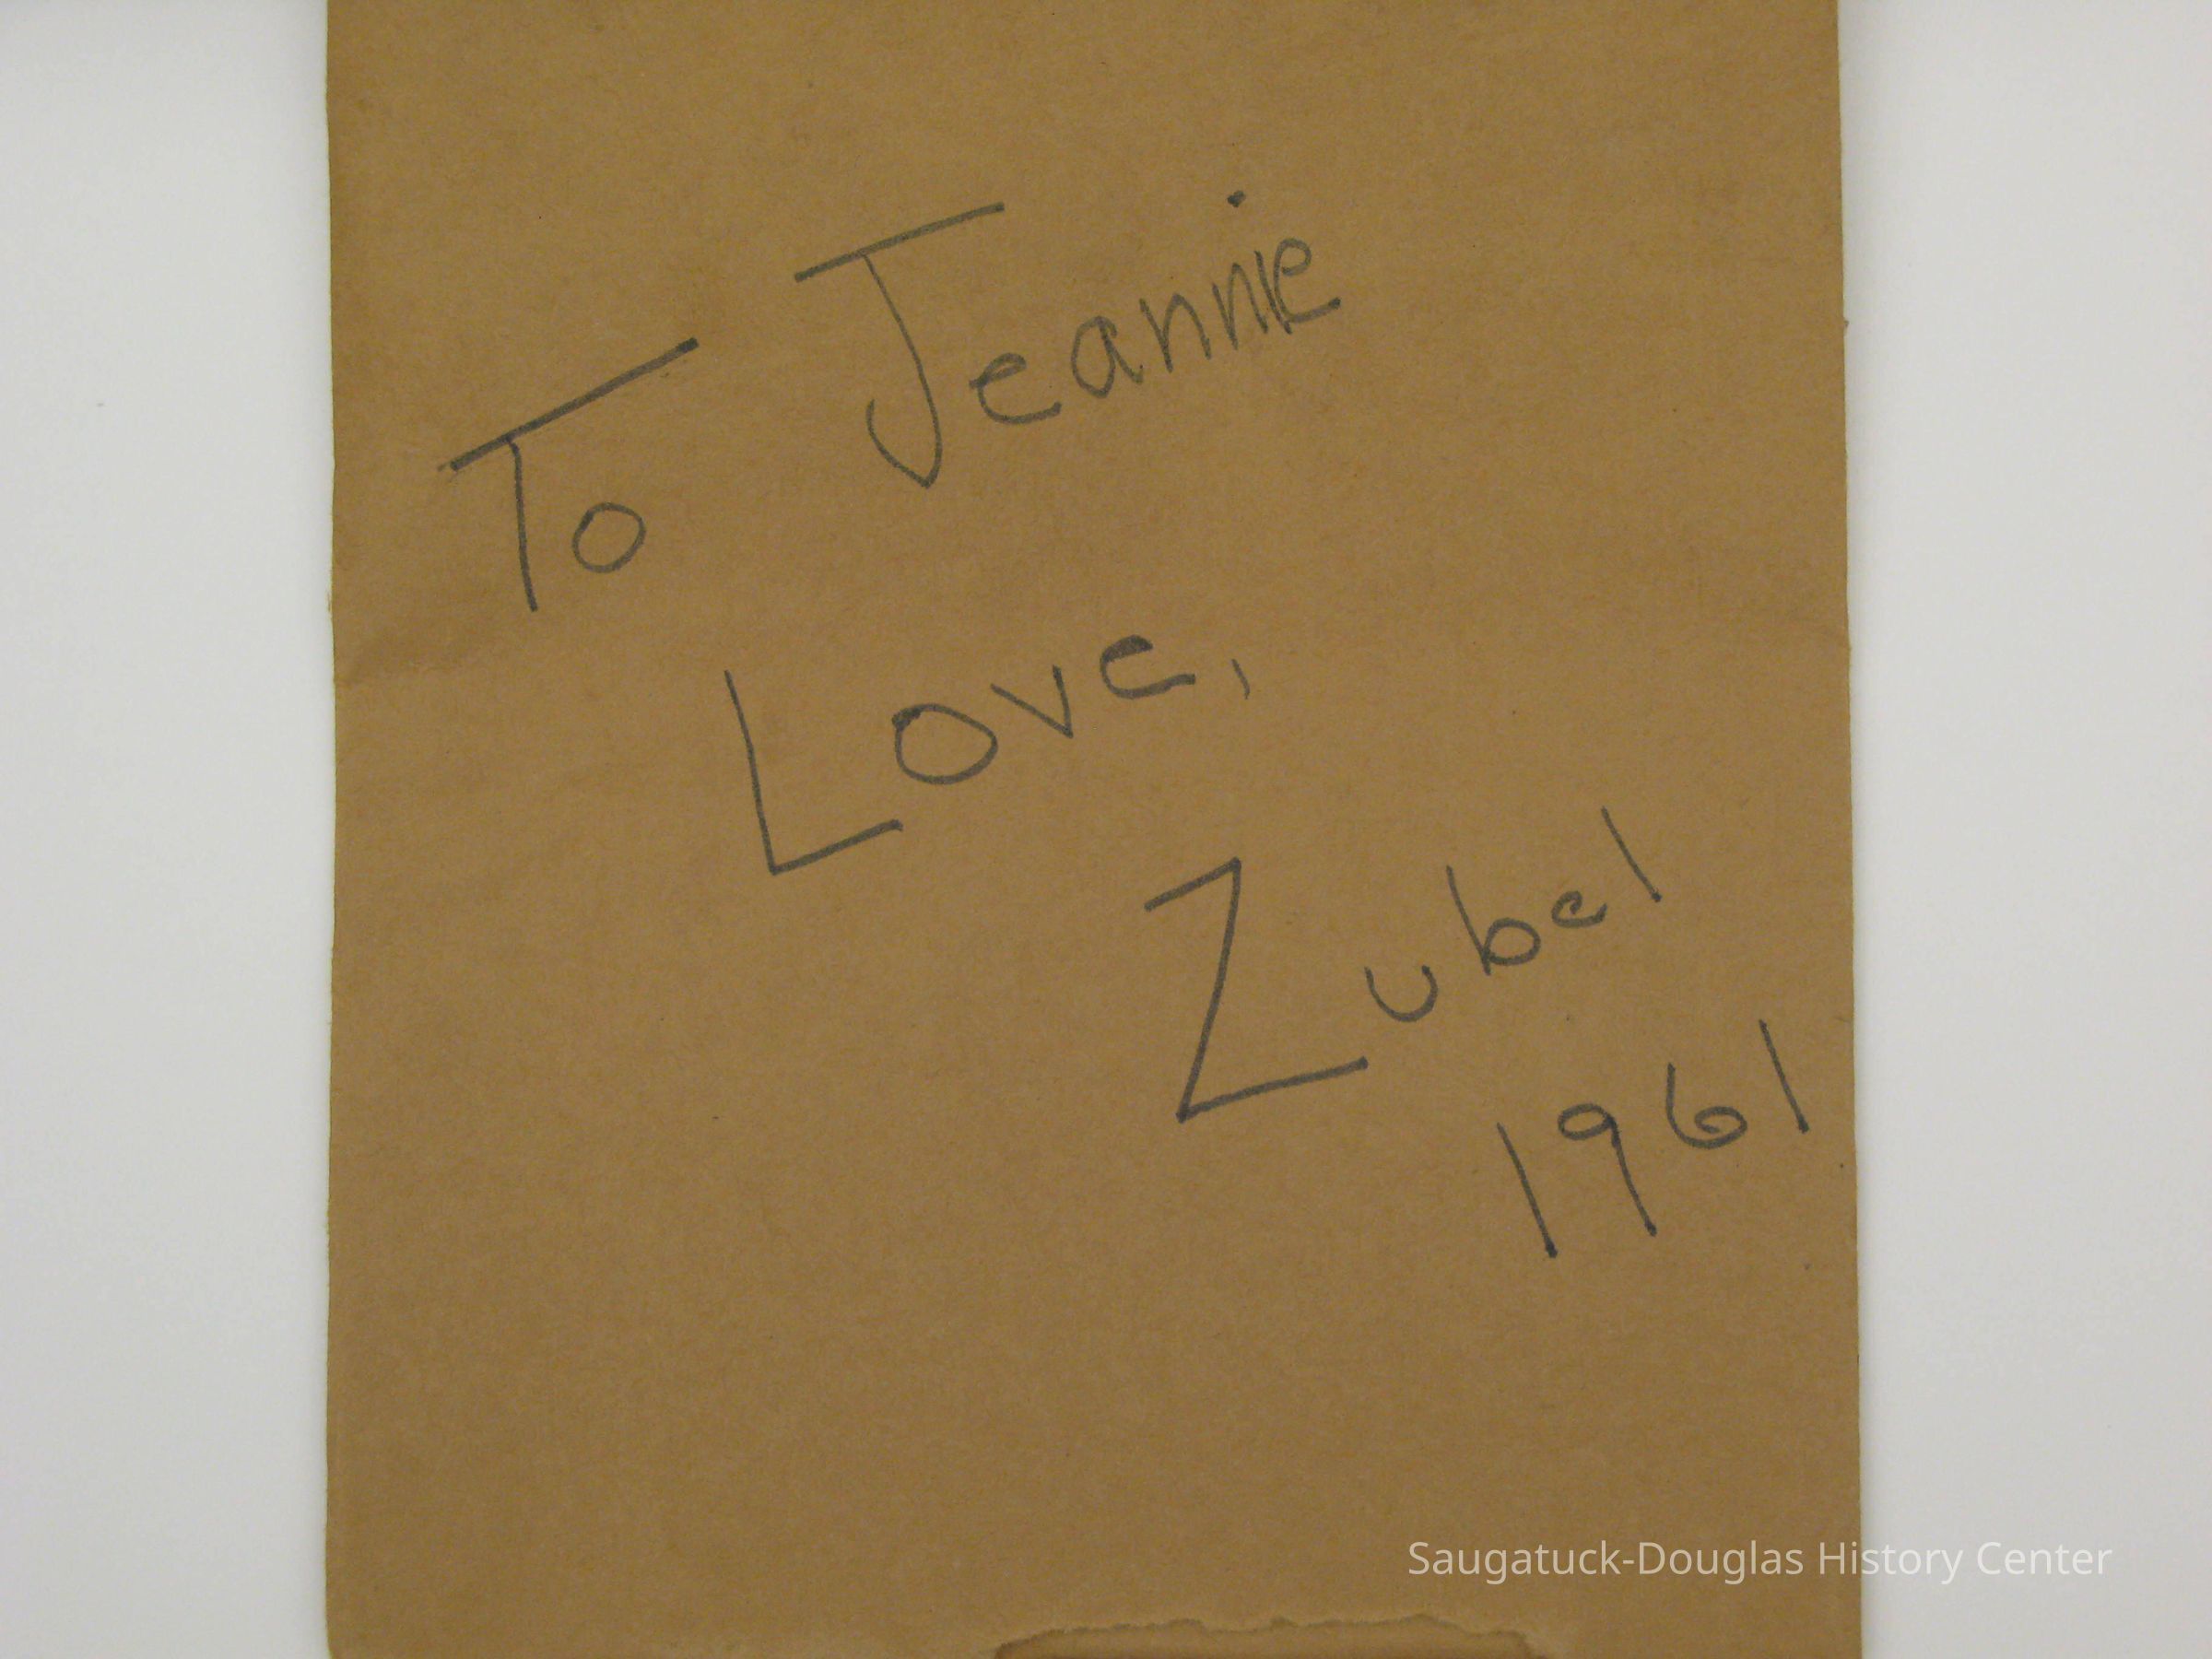 To Jeannie
Love,
Zubel
1961
Saugatuck-Douglas History Center